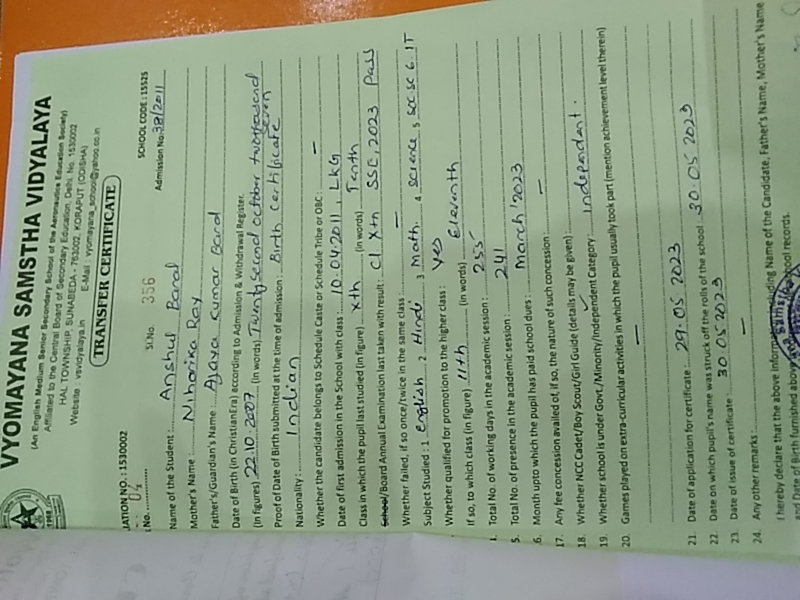 VYOMAYANA SAMSTHA VIDYALAYA
(An English Medium Senior Secondary School of the Aeronautics Education Society)
Affiliated to the Central Board of Secondary Education, Delhi, No. 1530002
HAL TOWNSHIP, SUNABEDA - 763002, KORAPUT (ODISHA)
Website : vsvidyalaya.in E-Mail : vyomayana_school@yahoo.co.in
TRANSFER CERTIFICATE
IATION NO. : 1530002 SCHOOL CODE : 15525
No. 04 Sl.No. 356 Admission No. 38/2011
Name of the Student : Anshul Baral
Mother's Name : Niharika Ray
Father's/Guardian's Name : Ajaya Kumar Baral
Date of Birth (in Christian Era) according to Admission & Withdrawal Register.
(In figures) 22.10.2007 (In words) Twenty Second October two thousand seven
Proof of Date of Birth submitted at the time of admission : Birth Certificate
Nationality : Indian
Whether the candidate belongs to Schedule Caste or Schedule Tribe or OBC : —
Date of first admission in the School with class : 10.04.2011, LKG
Class in which the pupil last studied (in figure) Xth (in words) Tenth
School/Board Annual Examination last taken with result : Cl Xth SSE, 2023 Pass
Whether failed, if so once/twice in the same class : —
Subject Studied : 1 English 2 Hindi 3 Math 4 Science 5 Soc Sc 6 IT
Whether qualified for promotion to the higher class : Yes
If so, to which class (in figure) 11th (In words) Eleventh
Total No. of working days in the academic session : 255
5. Total No. of presence in the academic session : 241
6. Month upto which the pupil has paid school dues : March '2023
17. Any fee concession availed of, if so, the nature of such concession : —
18. Whether NCC Cadet/Boy Scout/Girl Guide (details may be given) :
19. Whether school is under Govt./Minority/Independent Category : Independent.
20. Games played on extra-curricular activities in which the pupil usually took part (mention achievement level therein)
—
21. Date of application for certificate : 29.05.2023
22. Date on which pupil's name was struck off the rolls of the school : 30.05.2023
23. Date of issue of certificate : 30.05.2023
24. Any other remarks : —
I hereby declare that the above including Name of the Candidate, Father's Name, Mother's Name
and Date of Birth furnished above school records.